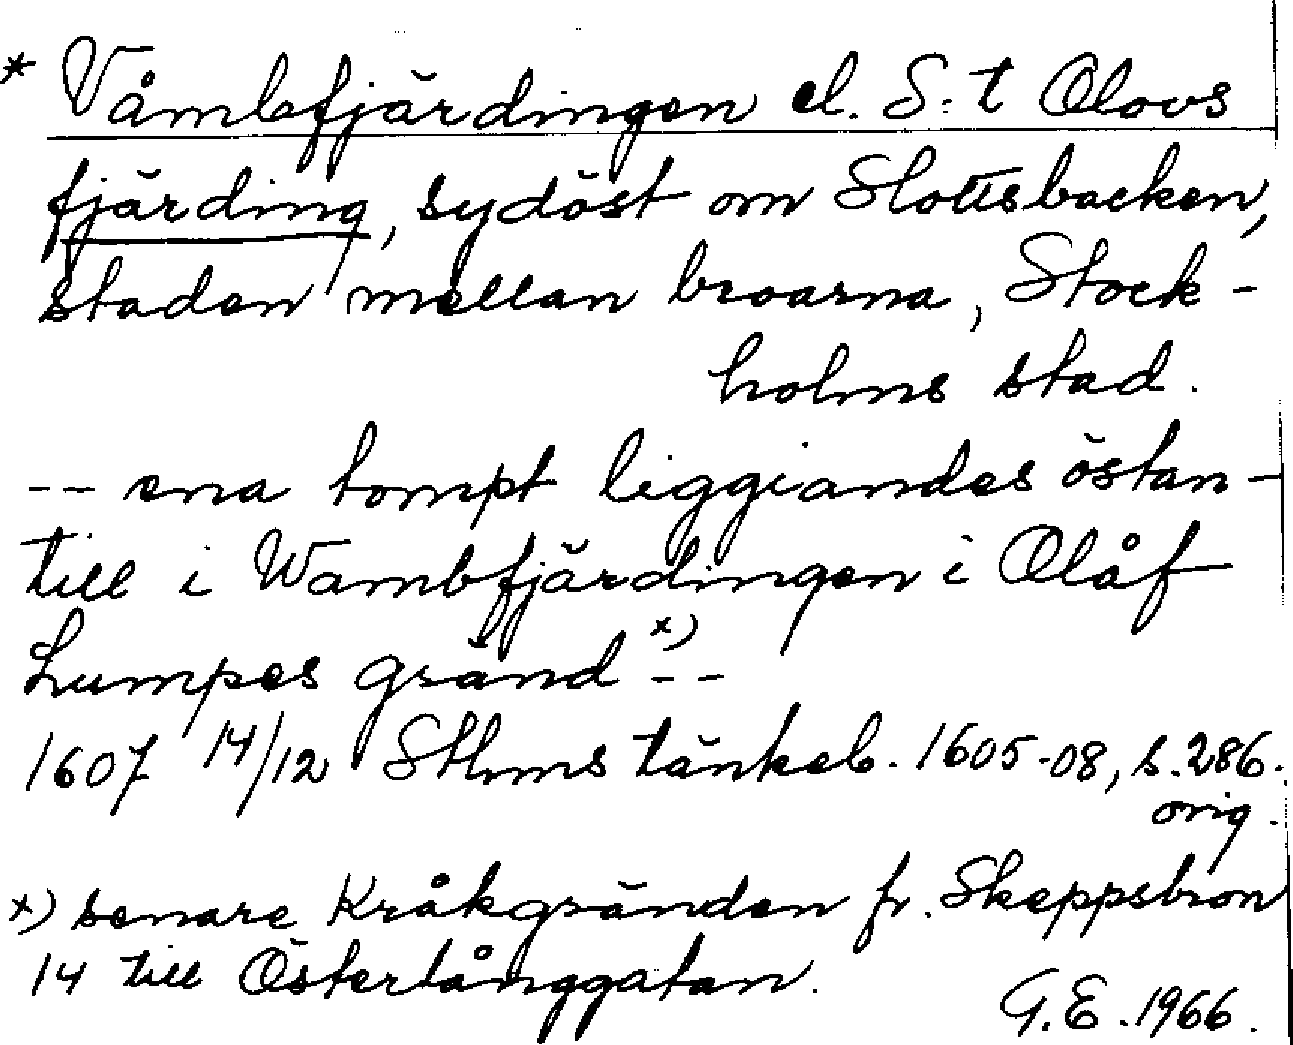 * Våmbfjärdingen el. S:t Olovs
fjärding, sydöst om Slottsbacken,
staden mellan broarna, Stock-
holms stad.
-- ena tompt liggiandes östan-
till i Wambfjärdingen i Olåf
Lumpes gränd x) --
1607 14/12 Sthms tänkeb. 1605-08, s. 286.
orig.
x) senare Kråkgränden fr. Skeppsbron
14 till Österlånggatan.
G.E. 1966.